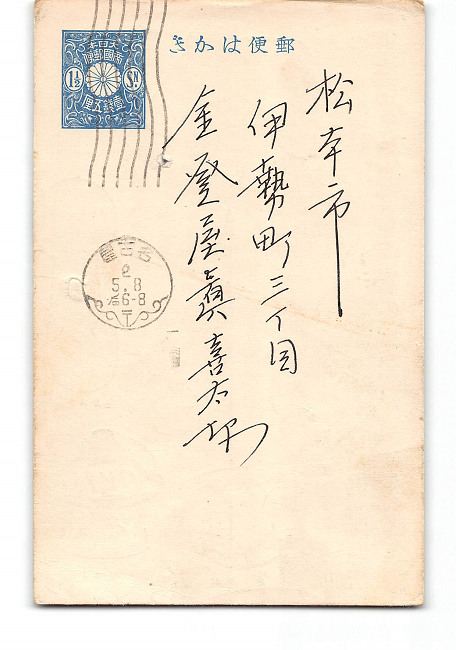 郵便はかき
大日本
帝國郵便
1½ Sn.
壹錢五厘
松本市
伊勢町三丁目
金登屋 喜太郎
名古屋
2
5.8
6-8